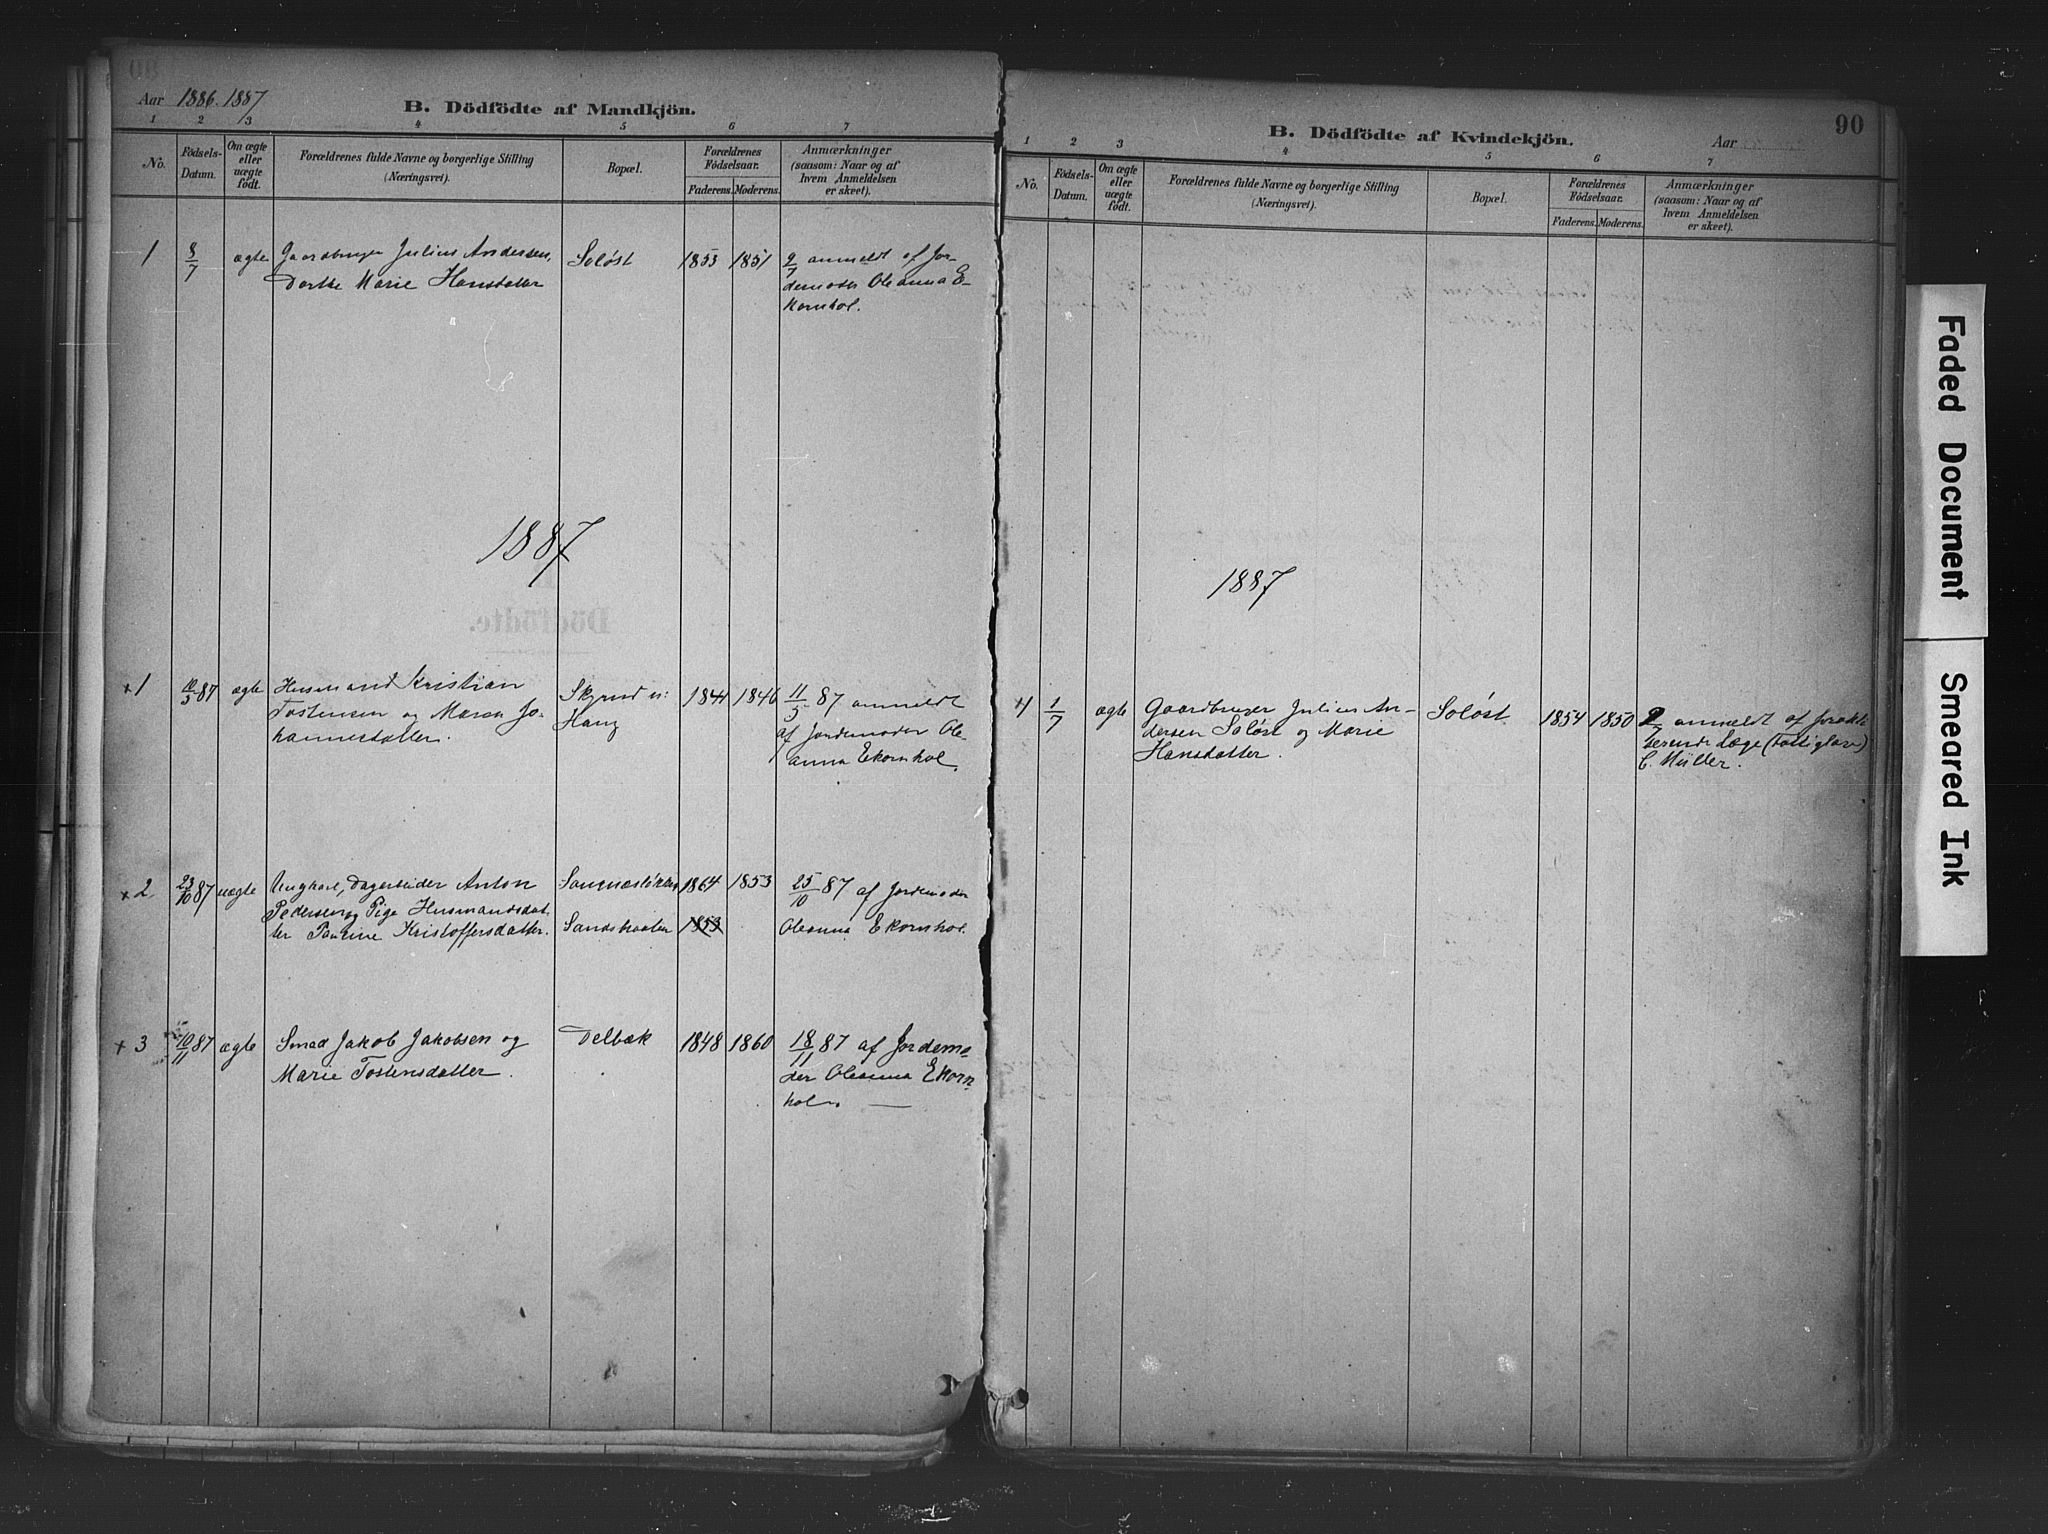 Aar 1886. 1887
B. Dödfödte af Mandkjön.
1 2 3 4 5 6 7
No.
Födsels-
Datum.
Om ægte
eller
uægte
födt.
Forældrenes fulde Navne og borgerlige Stilling
(Næringsvei).
Bopæl.
Forældrenes
Födselsaar.
Faderens. Moderens.
Anmærkninger
(saasom: Naar og af
hvem Anmeldelsen
er skeet).
1 8/7 ægte Gaardbruger Julius Andersen, Soløst 1853 1851 9/7 anmeldt af Jor-
Dorthe Marie Hansdatter
demoder Oleanna E-
kornhol.
1887
+1 10/5 87 ægte Husmand Kristian
Tostensen og Maren Jo-
hannesdatter.
Skyrud u:
Haug
1844 1846 11/5 87 anmeldt
af Jordemoder Ole-
anna Ekornhol.
+2 23/10 87 uægte Ungkarl, Dagarbeider Anton
Pedersen og Pige Husmandsdat-
ter Pauline Kristoffersdatter.
Sandstraaten
1864 1853
1853
25/10 87 af Jordemoder
Oleanna Ekornhol.
+3 10/11 87 ægte Smed Jakob Jakobsen og
Marie Tostensdatter.
Delbæk
1848 1860 18/11 87 af Jordemo-
der Oleanna Ekorn-
hol.
90
B. Dödfödte af Kvindekjön.
Aar
1 2 3 4 5 6 7
No.
Födsels-
Datum.
Om ægte
eller
uægte
födt.
Forældrenes fulde Navne og borgerlige Stilling
(Næringsvei).
Bopæl.
Forældrenes
Födselsaar.
Faderens. Moderens.
Anmærkninger
(saasom: Naar og af
hvem Anmeldelsen
er skeet).
1887
+1 1/7 ægte Gaardbruger Julius An-
dersen Soløst og Marie
Hansdatter.
Soløst 1854 1850 2/7 anmeldt af prakti-
serende Læge (Fattiglæge)
C. Müller.
Faded Document
Smeared Ink